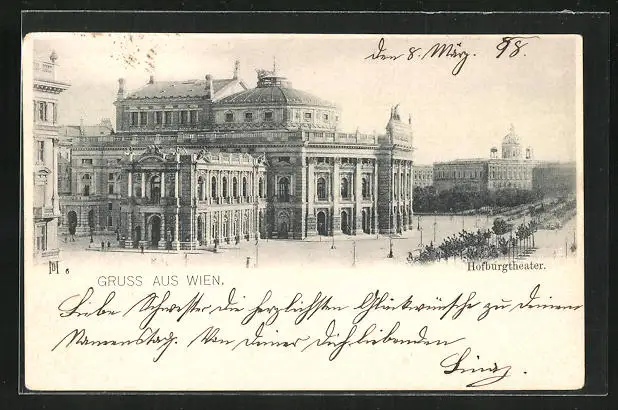 den 8. März. 98.
Hofburgtheater.
6
GRUSS AUS WIEN.
Liebe Schwester die herzlichsten Glückwünsche zu Deinem
Namenstag. Von Deiner Dich liebenden